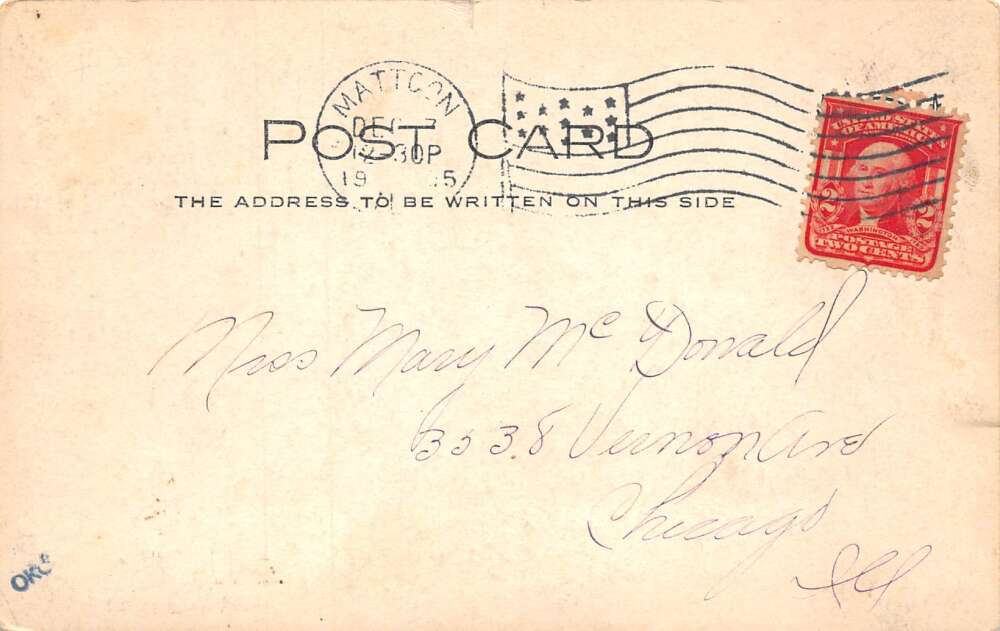 MATTOON
DEC 7
12 30P
19 5
POST CARD
THE ADDRESS TO BE WRITTEN ON THIS SIDE
U.S. 
OF AMERICA
2 WASHINGTON 2
POSTAGE
TWO CENTS
Miss Mary McDonald
3538 Vernon Ave
Chicago
Ill